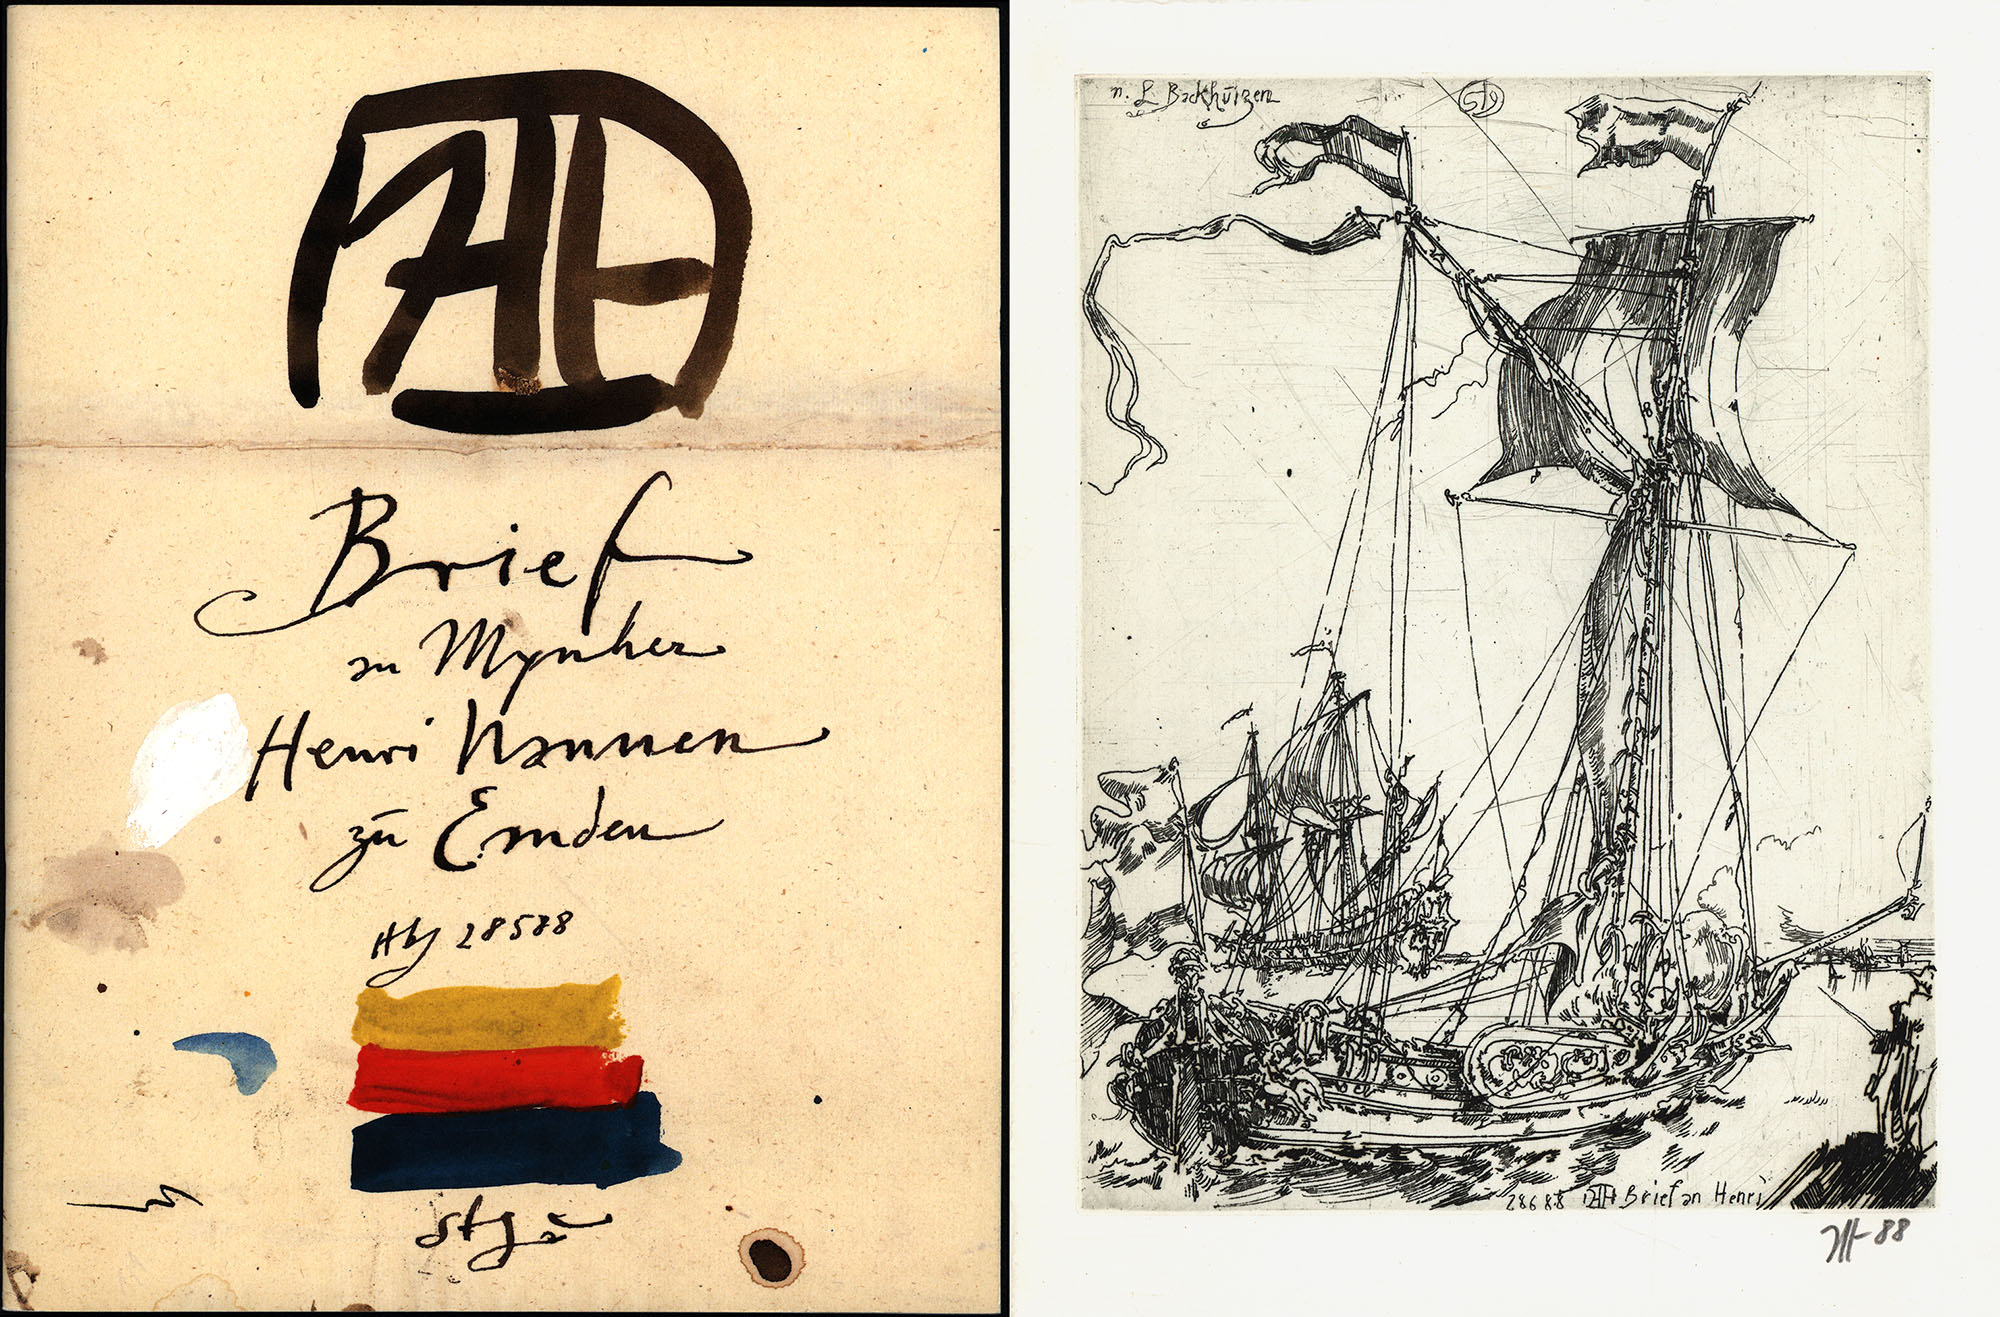 Brief
an Mynher
Henri Nannen
zū Emden
Hbg 28588
n. L Backhūizen
28688 Brief an Henri
88